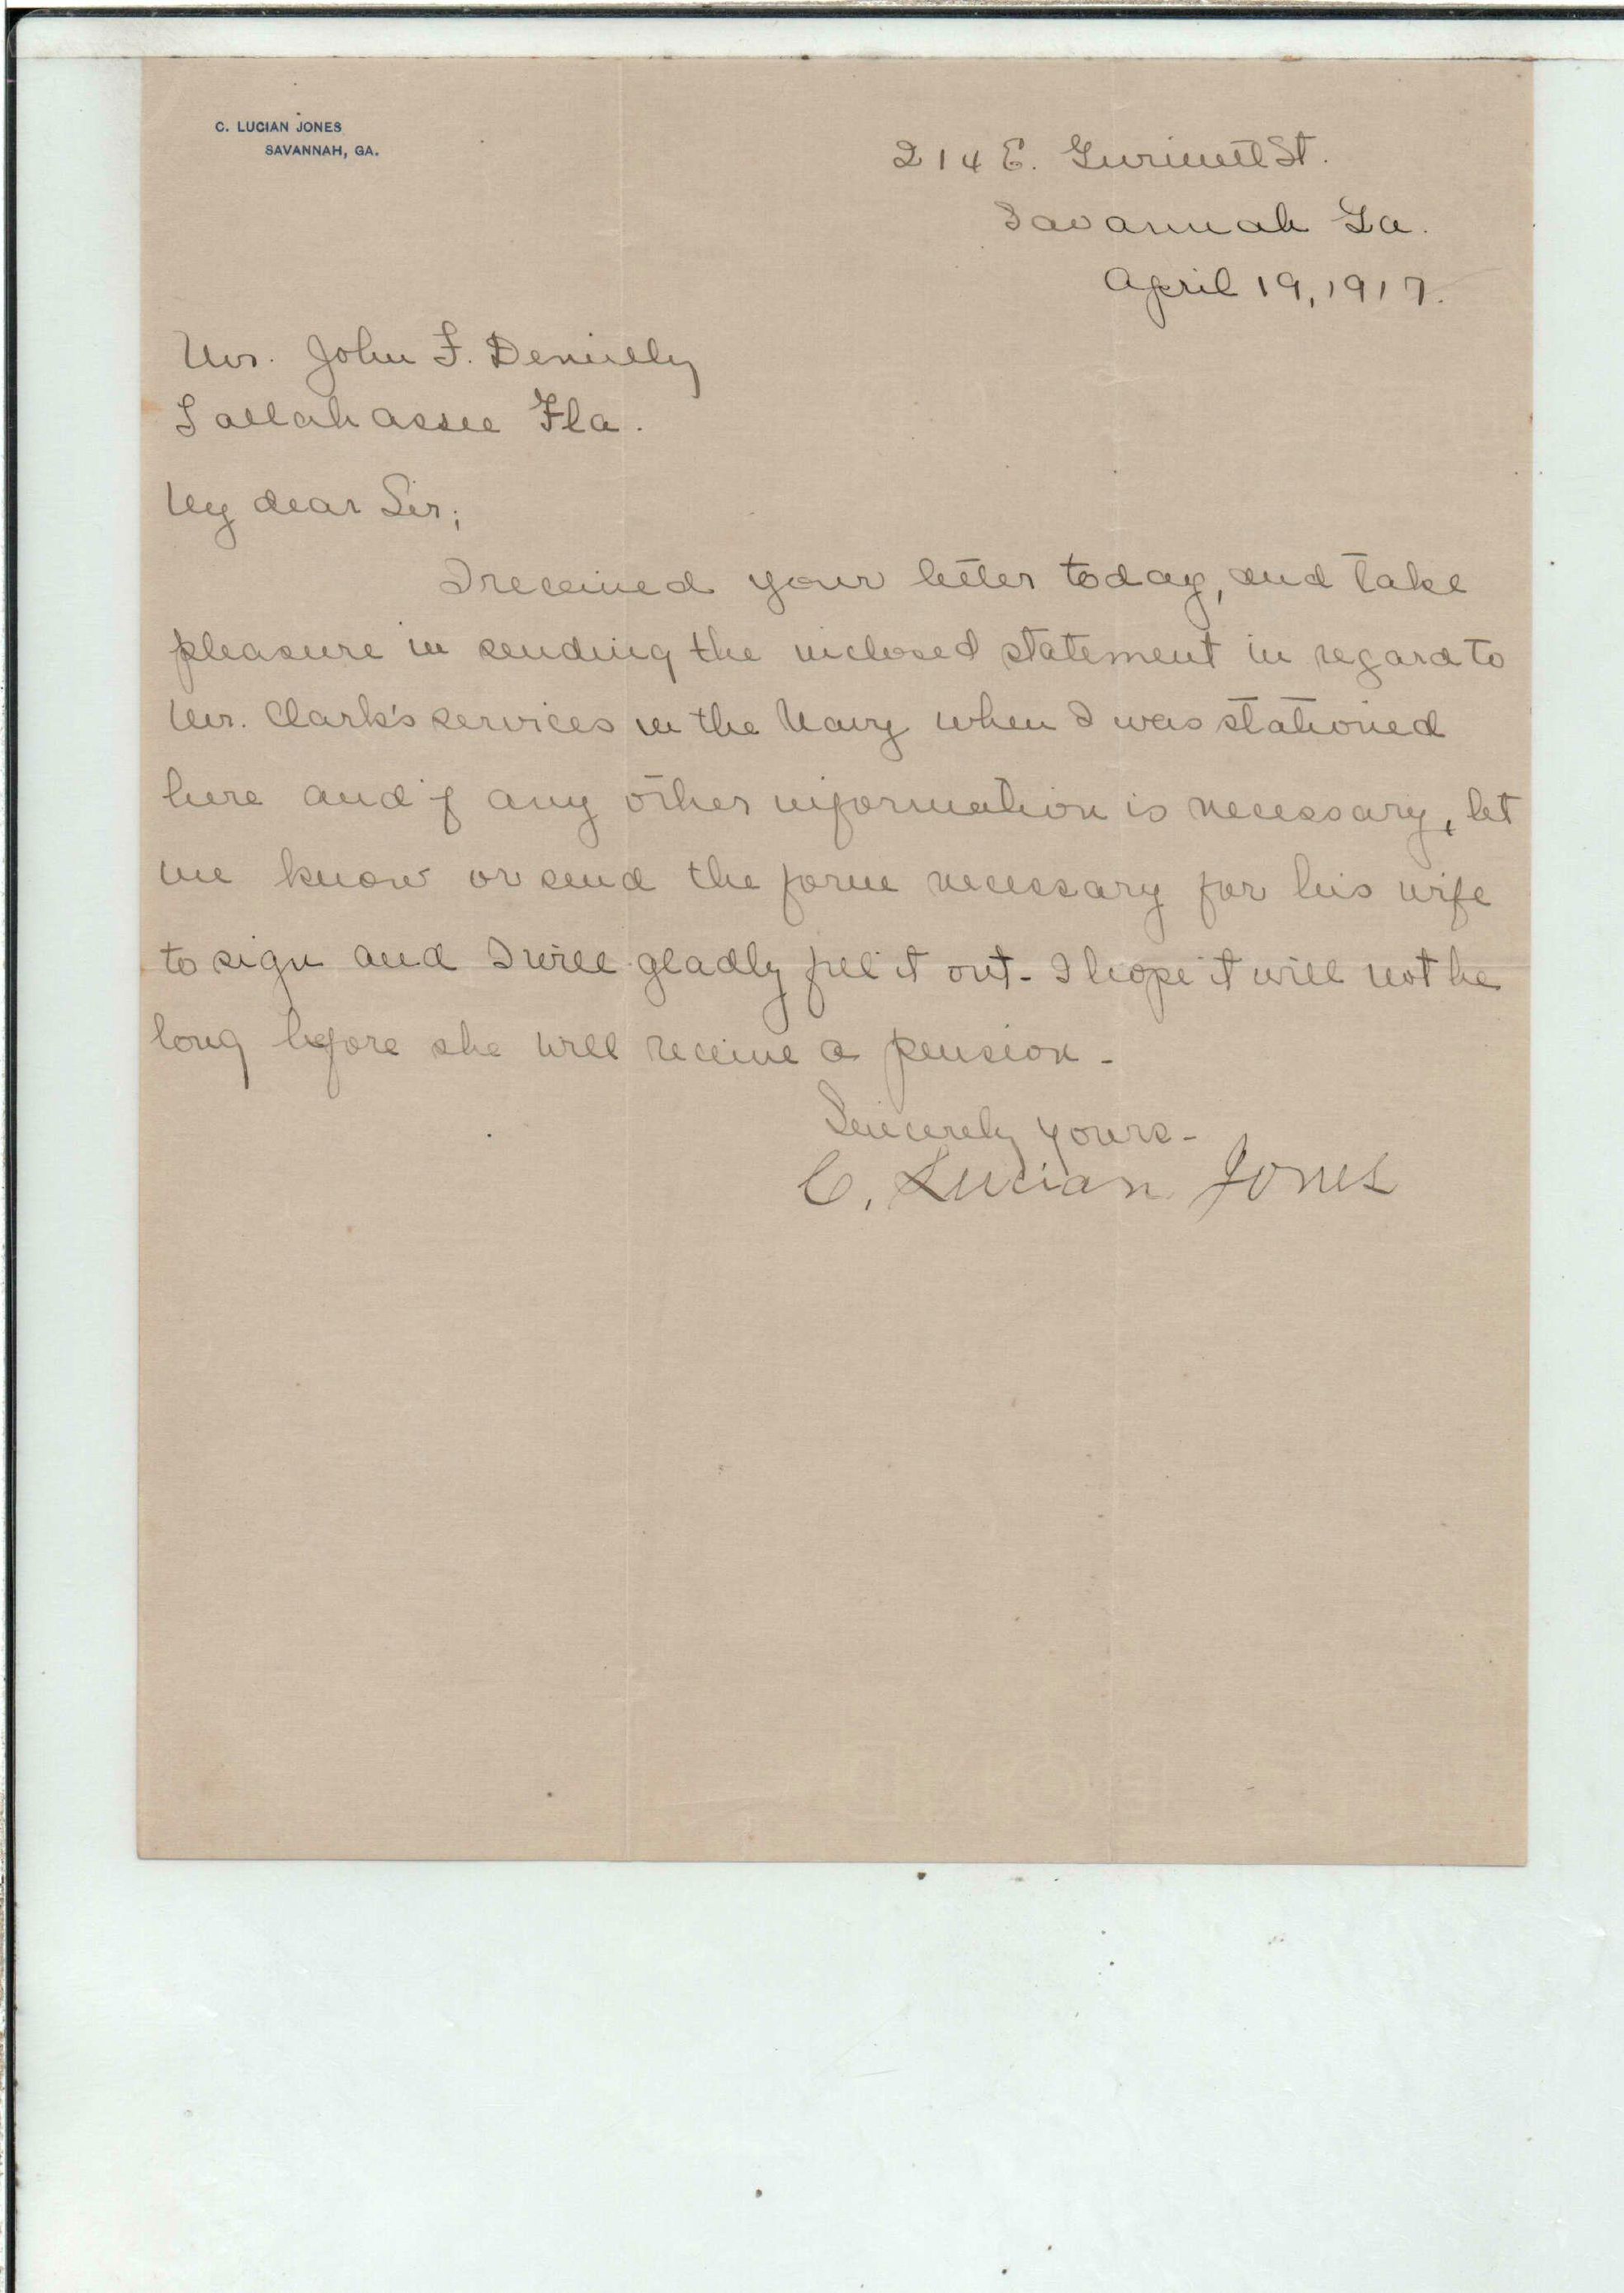 C. LUCIAN JONES
SAVANNAH, GA.
214 E. Gwinnett St.
Savannah Ga.
April 19, 1917.
Mr. John F. Denielly
Tallahassee Fla.
My dear Sir;
I received your letter today, and take
pleasure in sending the inclosed statement in regard to
Mr. Clark's services in the Navy when I was stationed
here and if any other information is necessary, let
me know or send the form necessary for his wife
to sign and I will gladly fill it out - I hope it will not be
long before she will receive a pension -
Sincerely yours -
C. Lucian Jones